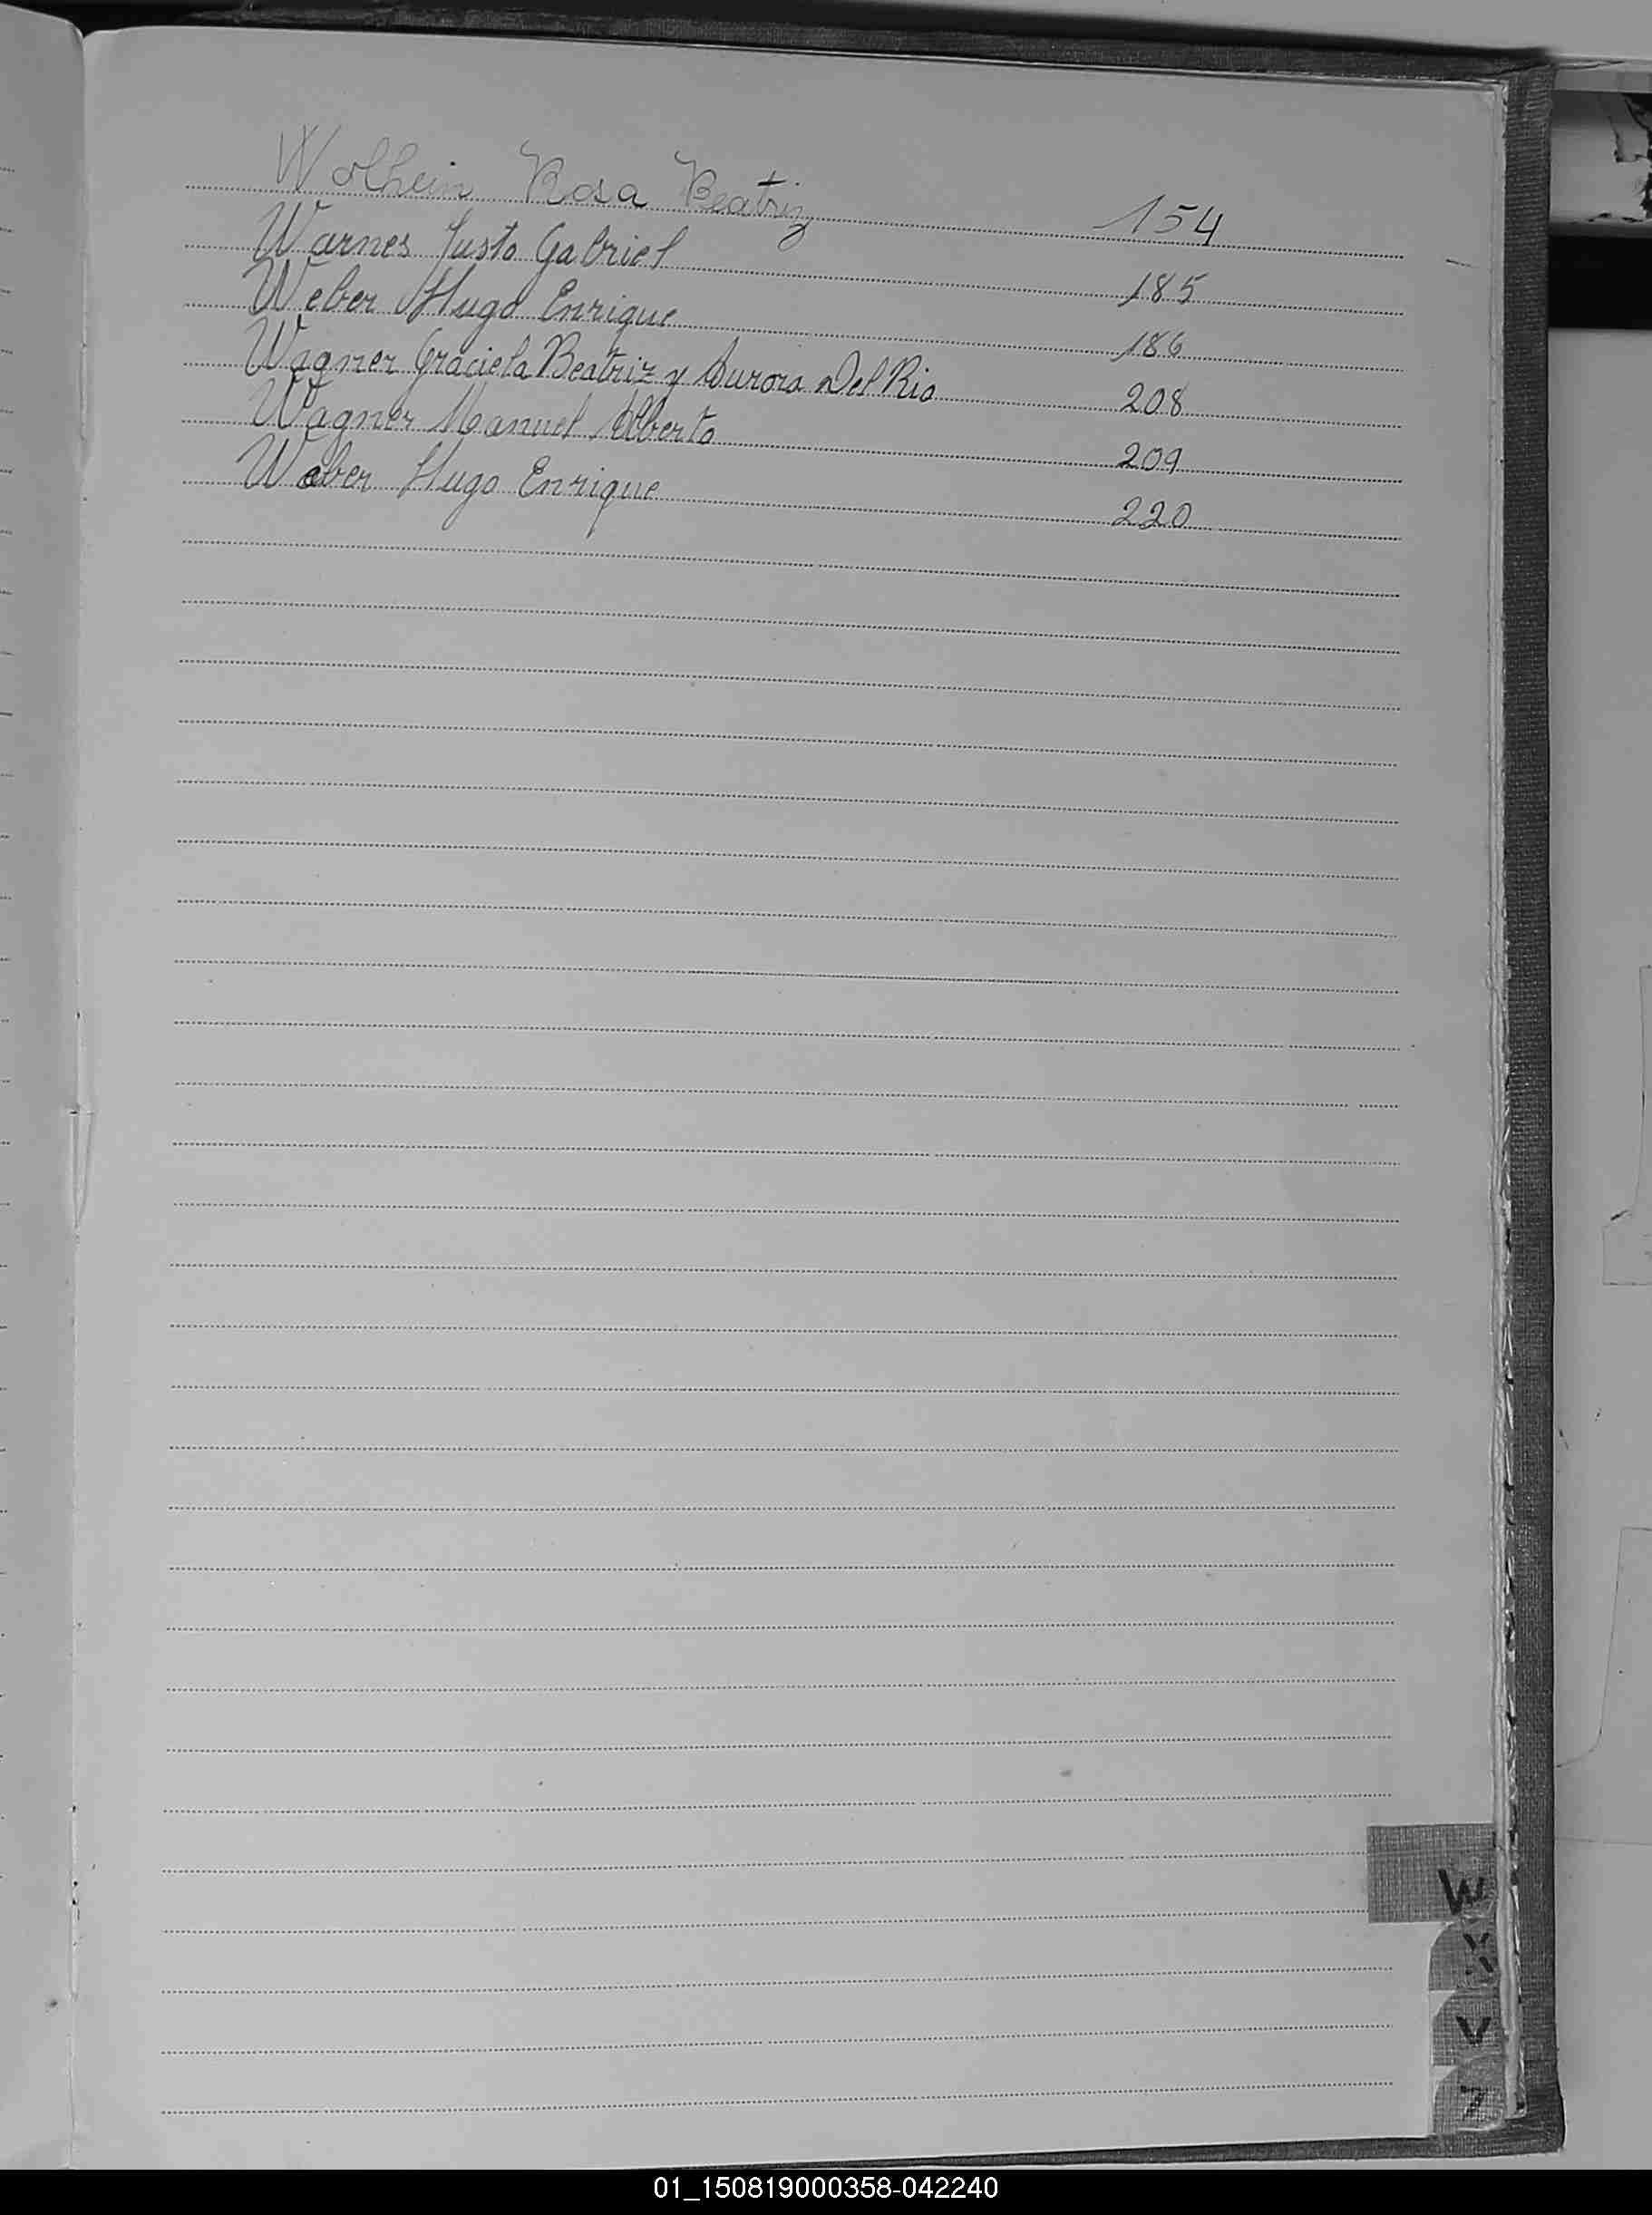 Wolhein Rosa Beatriz 154
Warnes Justo Gabriel 185
Weber Hugo Enrique 186
Wagner Graciela Beatriz y Aurora Del Rio 208
Wagner Manuel Alberto 209
Weber Hugo Enrique 220
W
X
Y
Z
01_150819000358-042240